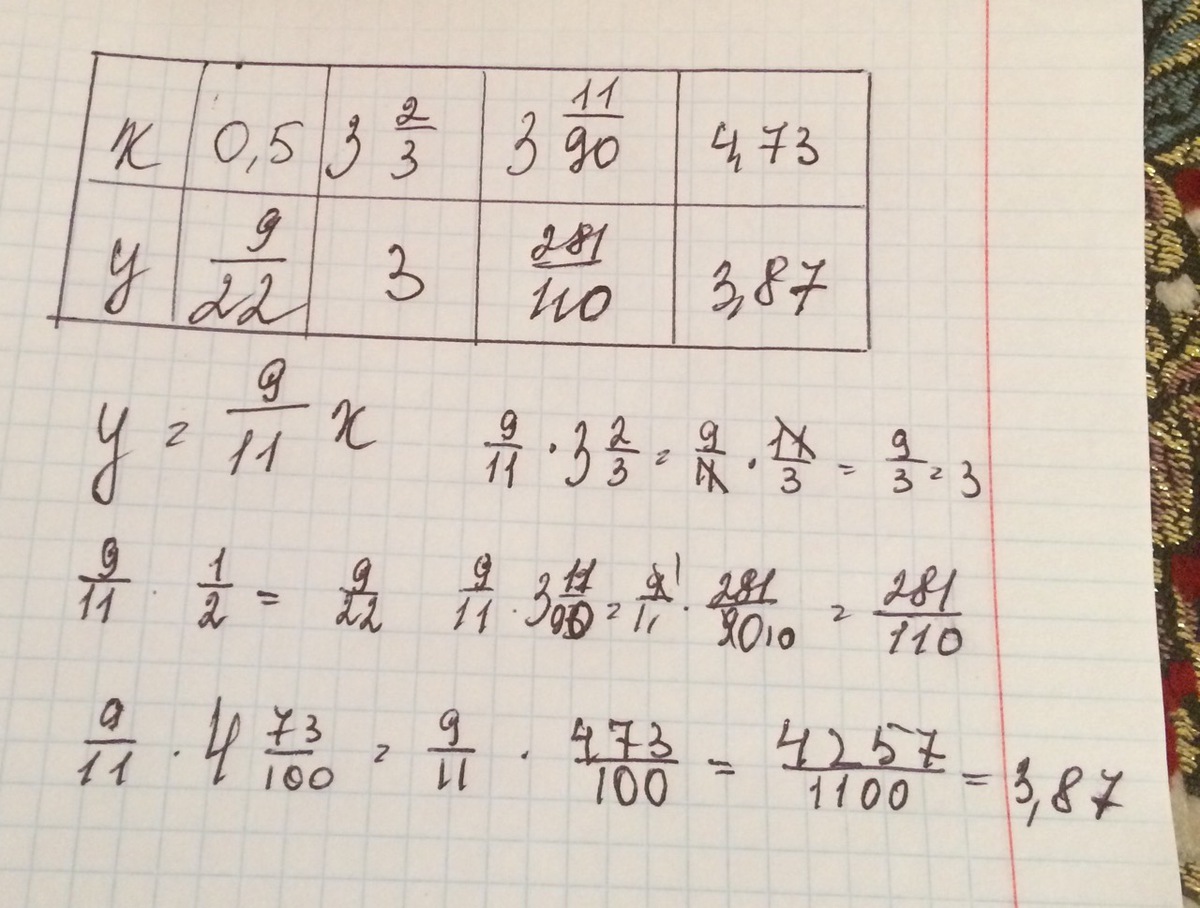 x 0,5 3 2/3 3 11/90 4,73
y 9/22 3 281/110 3,87
y = 9/11 x 9/11 · 3 2/3 = 9/11 · 11/3 = 9/3 = 3
9/11 · 1/2 = 9/22 9/11 · 3 11/90 = 9/11 1 · 281/90 10 = 281/110
9/11 · 4 73/100 = 9/11 · 473/100 = 4257/1100 = 3,87